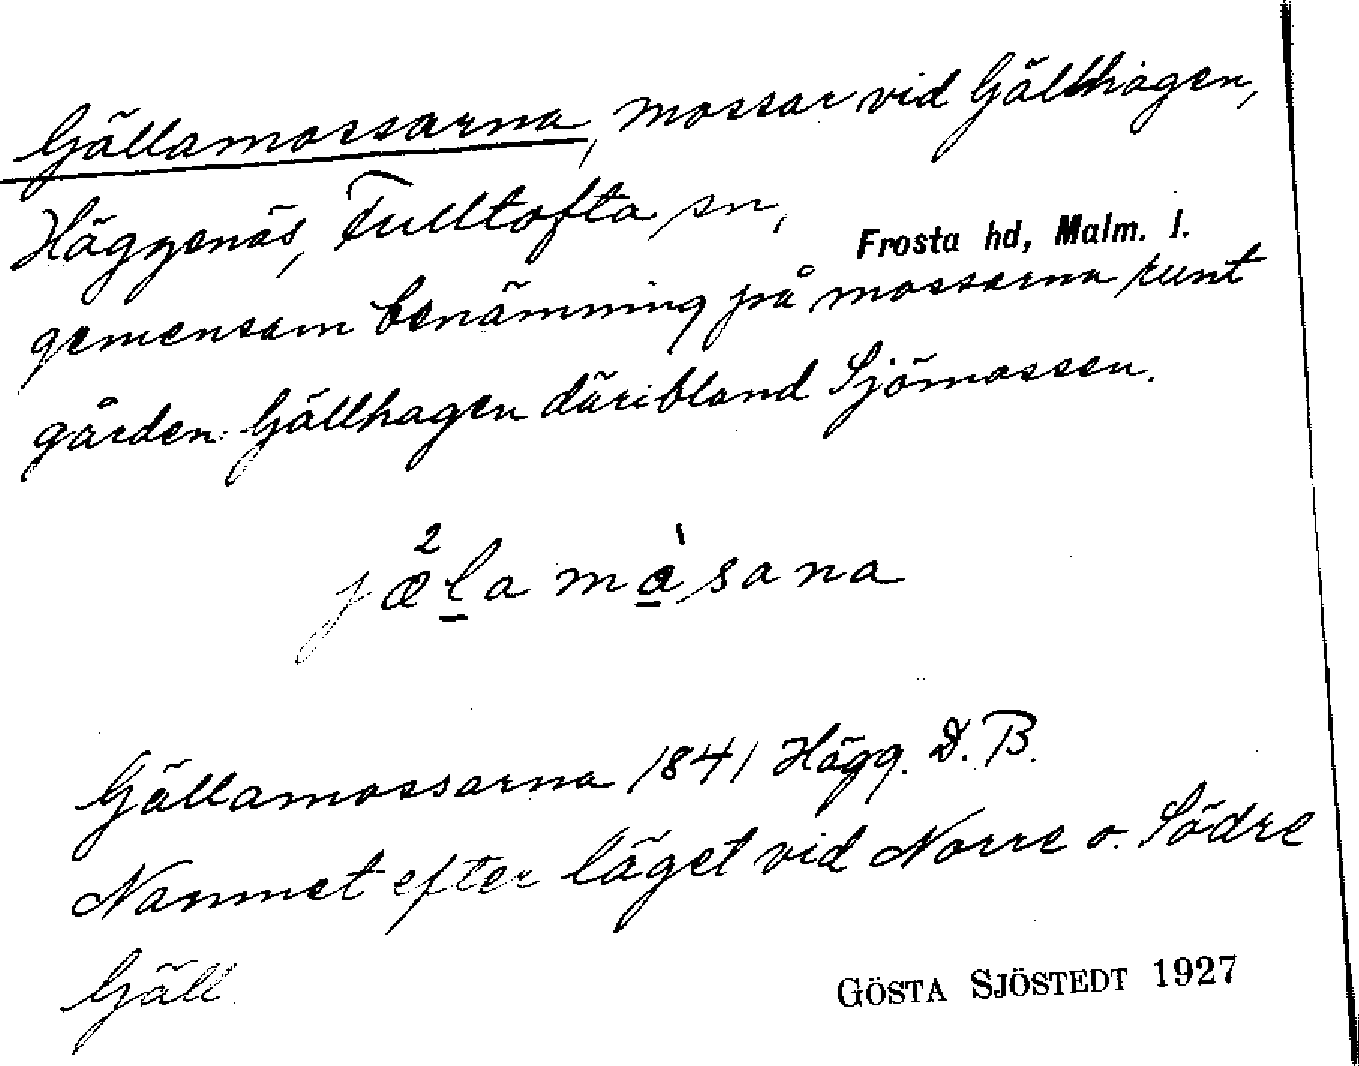 Gällamossarna, mossar vid Gällhagen,
Häggenäs, Fulltofta sn,
Frosta hd, Malm. l.
gemensam benämning på mossarna runt
gården Gällhagen däribland Sjömossen.
jæ²la mà̱sana
Gällamossarna 1841 Hägg. D. B.
Namnet efter läget vid Norre o. Södre
Gäll.
GÖSTA SJÖSTEDT 1927